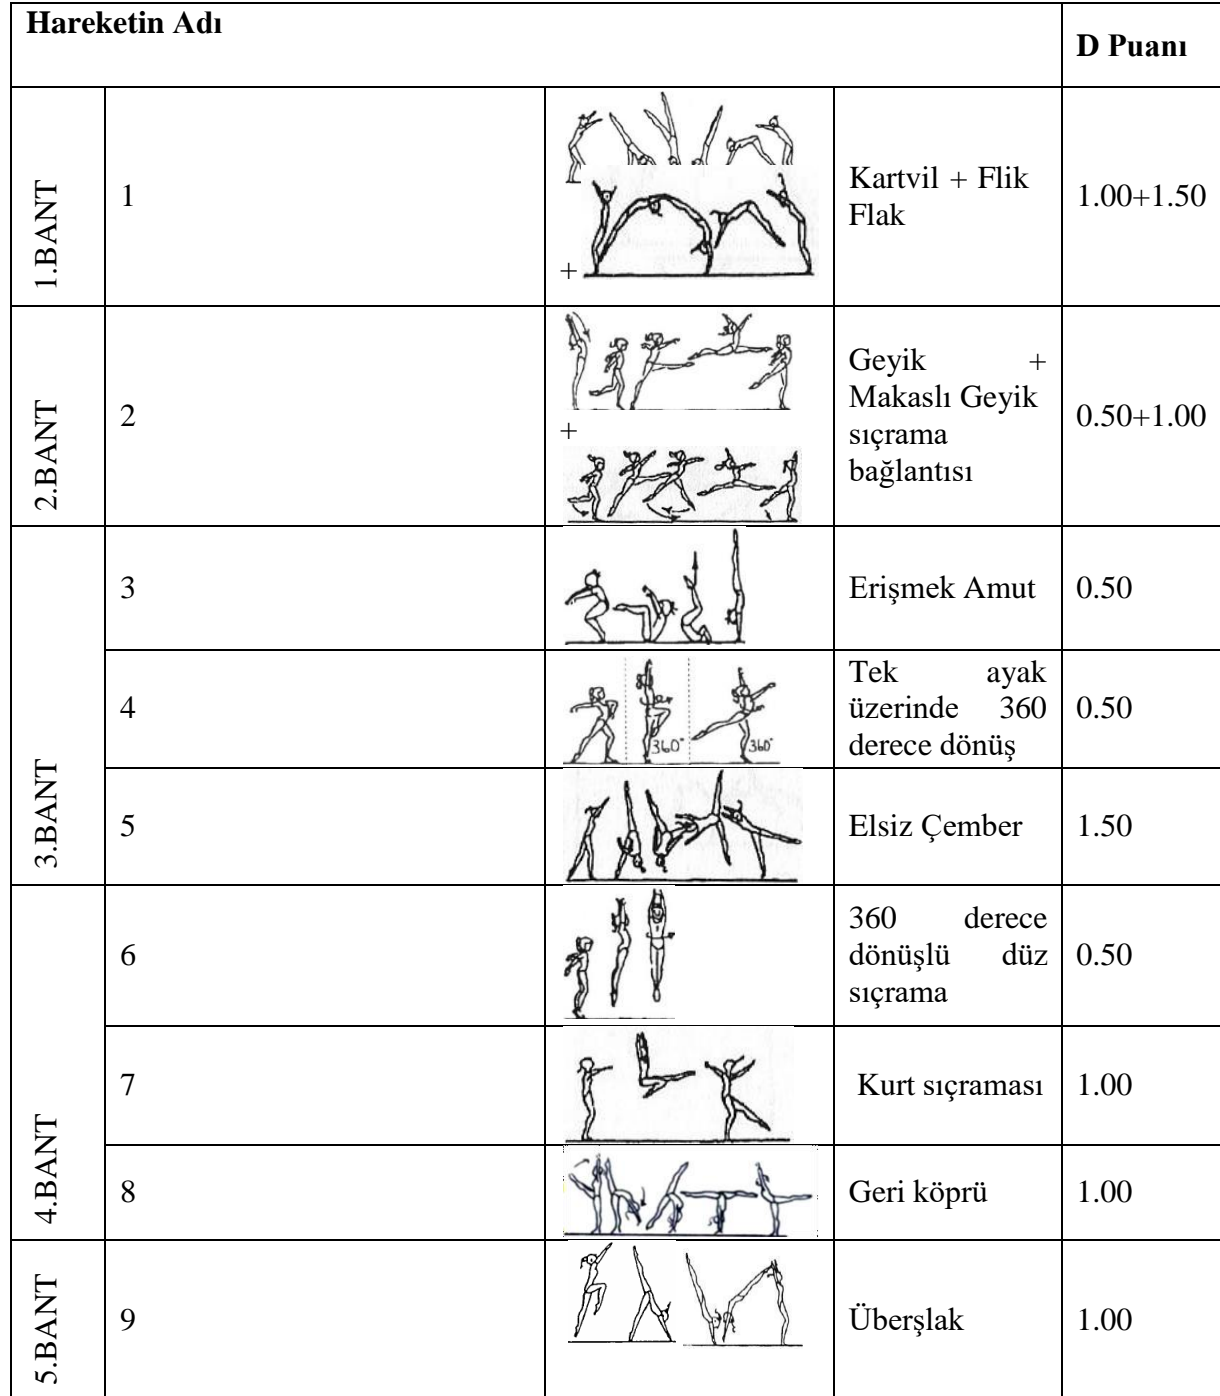 Hareketin Adı
D Puanı
1.BANT
1
+
Kartvil + Flik
Flak
1.00+1.50
2.BANT
2
+
Geyik +
Makaslı Geyik
sıçrama
bağlantısı
0.50+1.00
3.BANT
3
Erişmek Amut
0.50
4
360°
360°
Tek ayak
üzerinde 360
derece dönüş
0.50
5
Elsiz Çember
1.50
4.BANT
6
360 derece
dönüşlü düz
sıçrama
0.50
7
Kurt sıçraması
1.00
8
Geri köprü
1.00
5.BANT
9
Überşlak
1.00